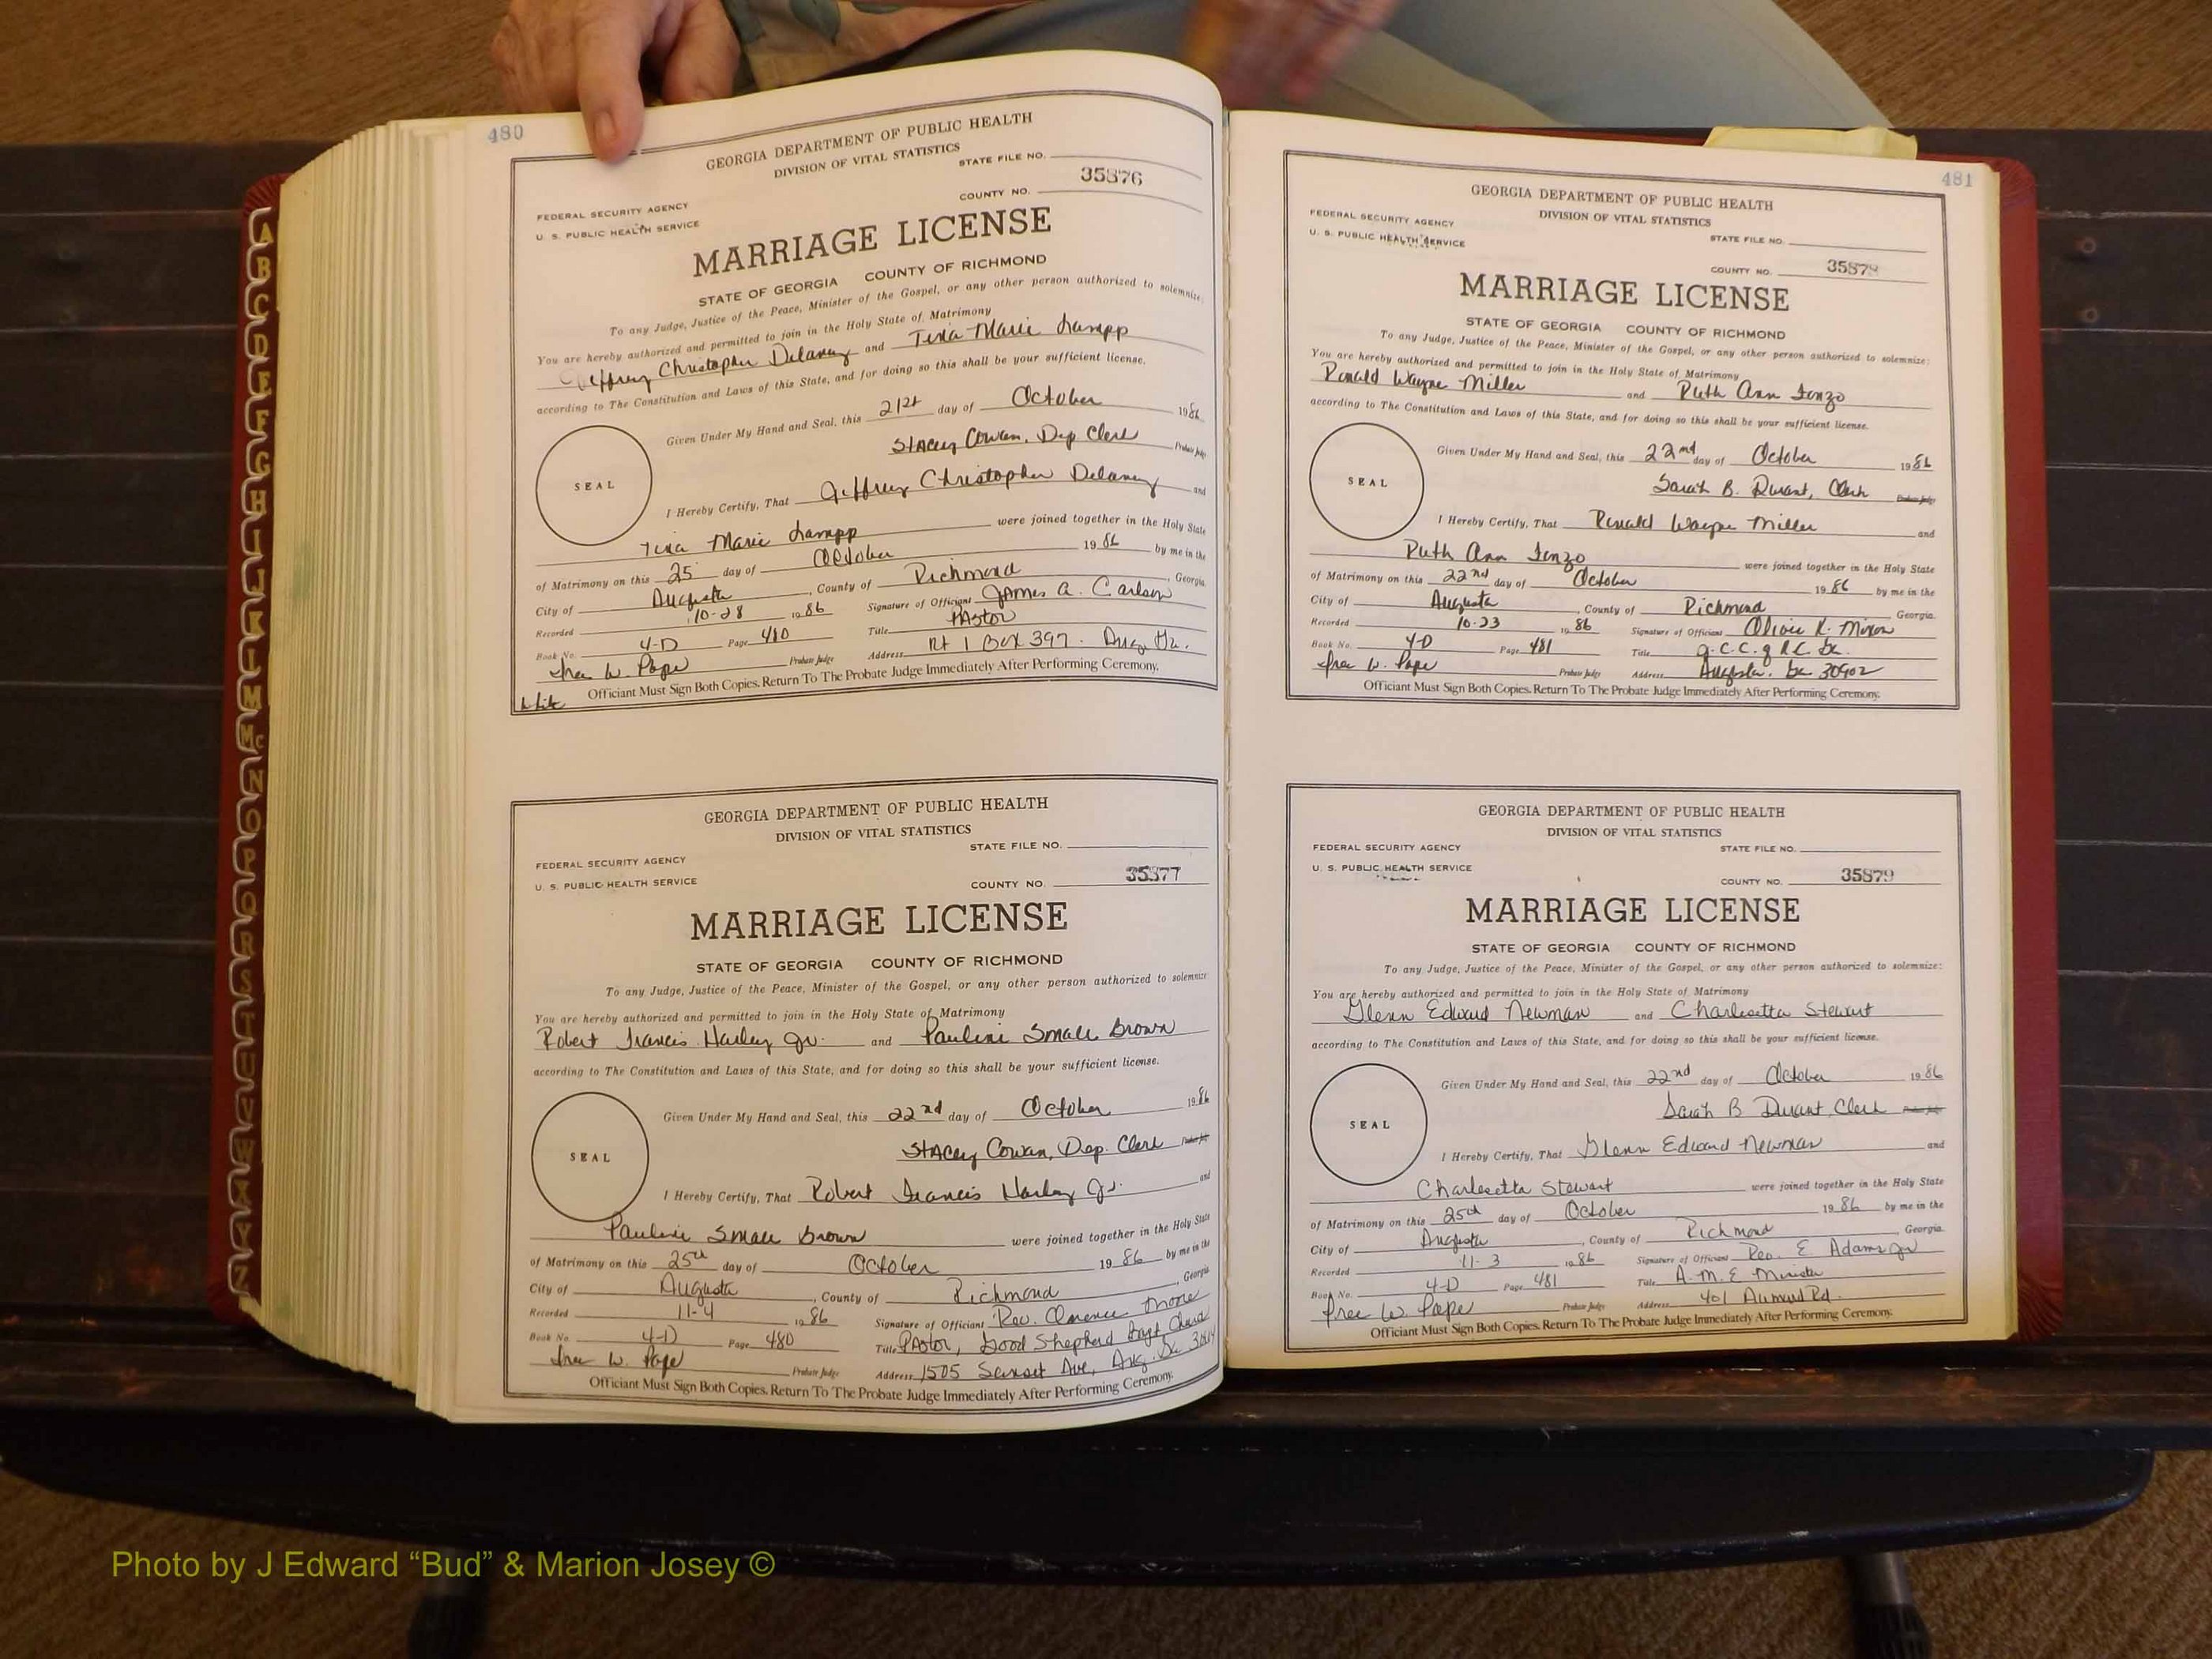 480
GEORGIA DEPARTMENT OF PUBLIC HEALTH
DIVISION OF VITAL STATISTICS
STATE FILE NO.
35876
COUNTY NO.
FEDERAL SECURITY AGENCY
U. S. PUBLIC HEALTH SERVICE
MARRIAGE LICENSE
STATE OF GEORGIA COUNTY OF RICHMOND
To any Judge, Justice of the Peace, Minister of the Gospel, or any other person authorized to solemnize:
You are hereby authorized and permitted to join in the Holy State of Matrimony
Jeffrey Christopher Delaney and Tina Marie Lampp
according to The Constitution and Laws of this State, and for doing so this shall be your sufficient license.
Given Under My Hand and Seal, this 21st day of October 1986
Stacey Cowan, Dep. Clerk Probate Judge
SEAL
I Hereby Certify, That Jeffrey Christopher Delaney and
Tina Marie Lampp were joined together in the Holy State
of Matrimony on this 25 day of October 1986 by me in the
City of Augusta, County of Richmond, Georgia.
Recorded 10-28 1986 Signature of Officiant James A. Carlson
Book No. 4-D Page 480 Title Pastor
Iree W. Pope Probate Judge Address Rt 1 Box 397. Aug Ga.
Officiant Must Sign Both Copies. Return To The Probate Judge Immediately After Performing Ceremony.
White
GEORGIA DEPARTMENT OF PUBLIC HEALTH
DIVISION OF VITAL STATISTICS
STATE FILE NO.
FEDERAL SECURITY AGENCY
U. S. PUBLIC HEALTH SERVICE
COUNTY NO. 35877
MARRIAGE LICENSE
STATE OF GEORGIA COUNTY OF RICHMOND
To any Judge, Justice of the Peace, Minister of the Gospel, or any other person authorized to solemnize:
You are hereby authorized and permitted to join in the Holy State of Matrimony
Robert Francis Harley Jr. and Pauline Small Brown
according to The Constitution and Laws of this State, and for doing so this shall be your sufficient license.
Given Under My Hand and Seal, this 22nd day of October 1986
Stacey Cowan, Dep. Clerk Probate Judge
SEAL
I Hereby Certify, That Robert Francis Harley Jr. and
Pauline Small Brown were joined together in the Holy State
of Matrimony on this 25th day of October 1986 by me in the
City of Augusta, County of Richmond, Georgia
Recorded 11-4 1986 Signature of Officiant Rev. Clarence Moore
Book No. 4-D Page 480 Title Pastor, Good Shepherd Bapt Church
Iree W. Pope Probate Judge Address 1505 Sunset Ave, Aug. Ga
Officiant Must Sign Both Copies. Return To The Probate Judge Immediately After Performing Ceremony.
481
GEORGIA DEPARTMENT OF PUBLIC HEALTH
DIVISION OF VITAL STATISTICS
FEDERAL SECURITY AGENCY
U. S. PUBLIC HEALTH SERVICE
STATE FILE NO.
COUNTY NO. 35878
MARRIAGE LICENSE
STATE OF GEORGIA COUNTY OF RICHMOND
To any Judge, Justice of the Peace, Minister of the Gospel, or any other person authorized to solemnize:
You are hereby authorized and permitted to join in the Holy State of Matrimony
Ronald Wayne Miller and Ruth Ann
according to The Constitution and Laws of this State, and for doing so this shall be your sufficient license.
Given Under My Hand and Seal, this 22nd day of October 1986
Sarah B. Durant, Clerk Probate Judge
SEAL
I Hereby Certify, That Ronald Wayne Miller and
Ruth Ann were joined together in the Holy State
of Matrimony on this 22nd day of October 1986 by me in the
City of Augusta, County of Richmond, Georgia.
Recorded 10-23 1986 Signature of Officiant Olivia K. Mixon
Book No. 4-D Page 481 Title J.C.C. of R.C. Ga.
Iree W. Pope Probate Judge Address Augusta, Ga 30902
Officiant Must Sign Both Copies. Return To The Probate Judge Immediately After Performing Ceremony.
GEORGIA DEPARTMENT OF PUBLIC HEALTH
DIVISION OF VITAL STATISTICS
FEDERAL SECURITY AGENCY
STATE FILE NO.
U. S. PUBLIC HEALTH SERVICE
COUNTY NO. 35879
MARRIAGE LICENSE
STATE OF GEORGIA COUNTY OF RICHMOND
To any Judge, Justice of the Peace, Minister of the Gospel, or any other person authorized to solemnize:
You are hereby authorized and permitted to join in the Holy State of Matrimony
Glenn Edward Newman and Charlesetta Stewart
according to The Constitution and Laws of this State, and for doing so this shall be your sufficient license.
Given Under My Hand and Seal, this 22nd day of October 1986
Sarah B Durant, Clerk Probate Judge
SEAL
I Hereby Certify, That Glenn Edward Newman and
Charlesetta Stewart were joined together in the Holy State
of Matrimony on this 25th day of October 1986 by me in the
City of Augusta, County of Richmond, Georgia.
Recorded 11-3 1986 Signature of Officiant Rev. E Adams Jr
Book No. 4-D Page 481 Title A.M.E Minister
Iree W. Pope Probate Judge Address 401 Aumond Rd.
Officiant Must Sign Both Copies. Return To The Probate Judge Immediately After Performing Ceremony.
A
B
C
D
E
F
G
H
I
J
K
L
M
Mc
N
O
P
Q
R
S
T
U
V
W
X
Y
Z
Photo by J Edward “Bud” & Marion Josey ©